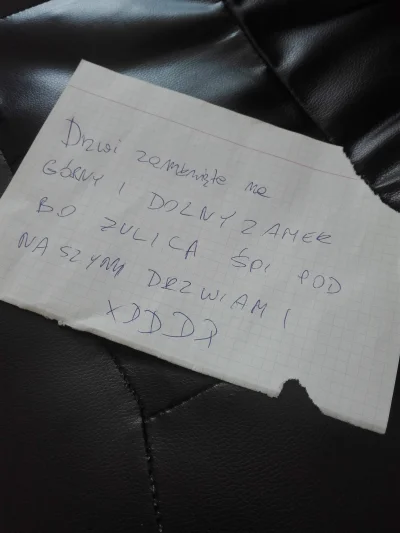 Drzwi zamknięte na
GÓRNY I DOLNY ZAMEK
BO ŻULICA ŚPI POD
NASZYMI DRZWIAMI
XDDDD